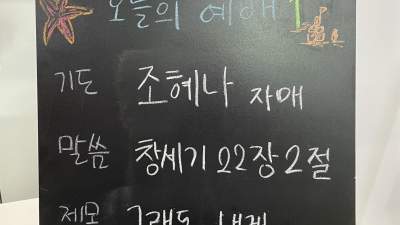 오늘의 예배
기도 조혜나 자매
말씀 창세기 22장 2절
제목 그래도 내게